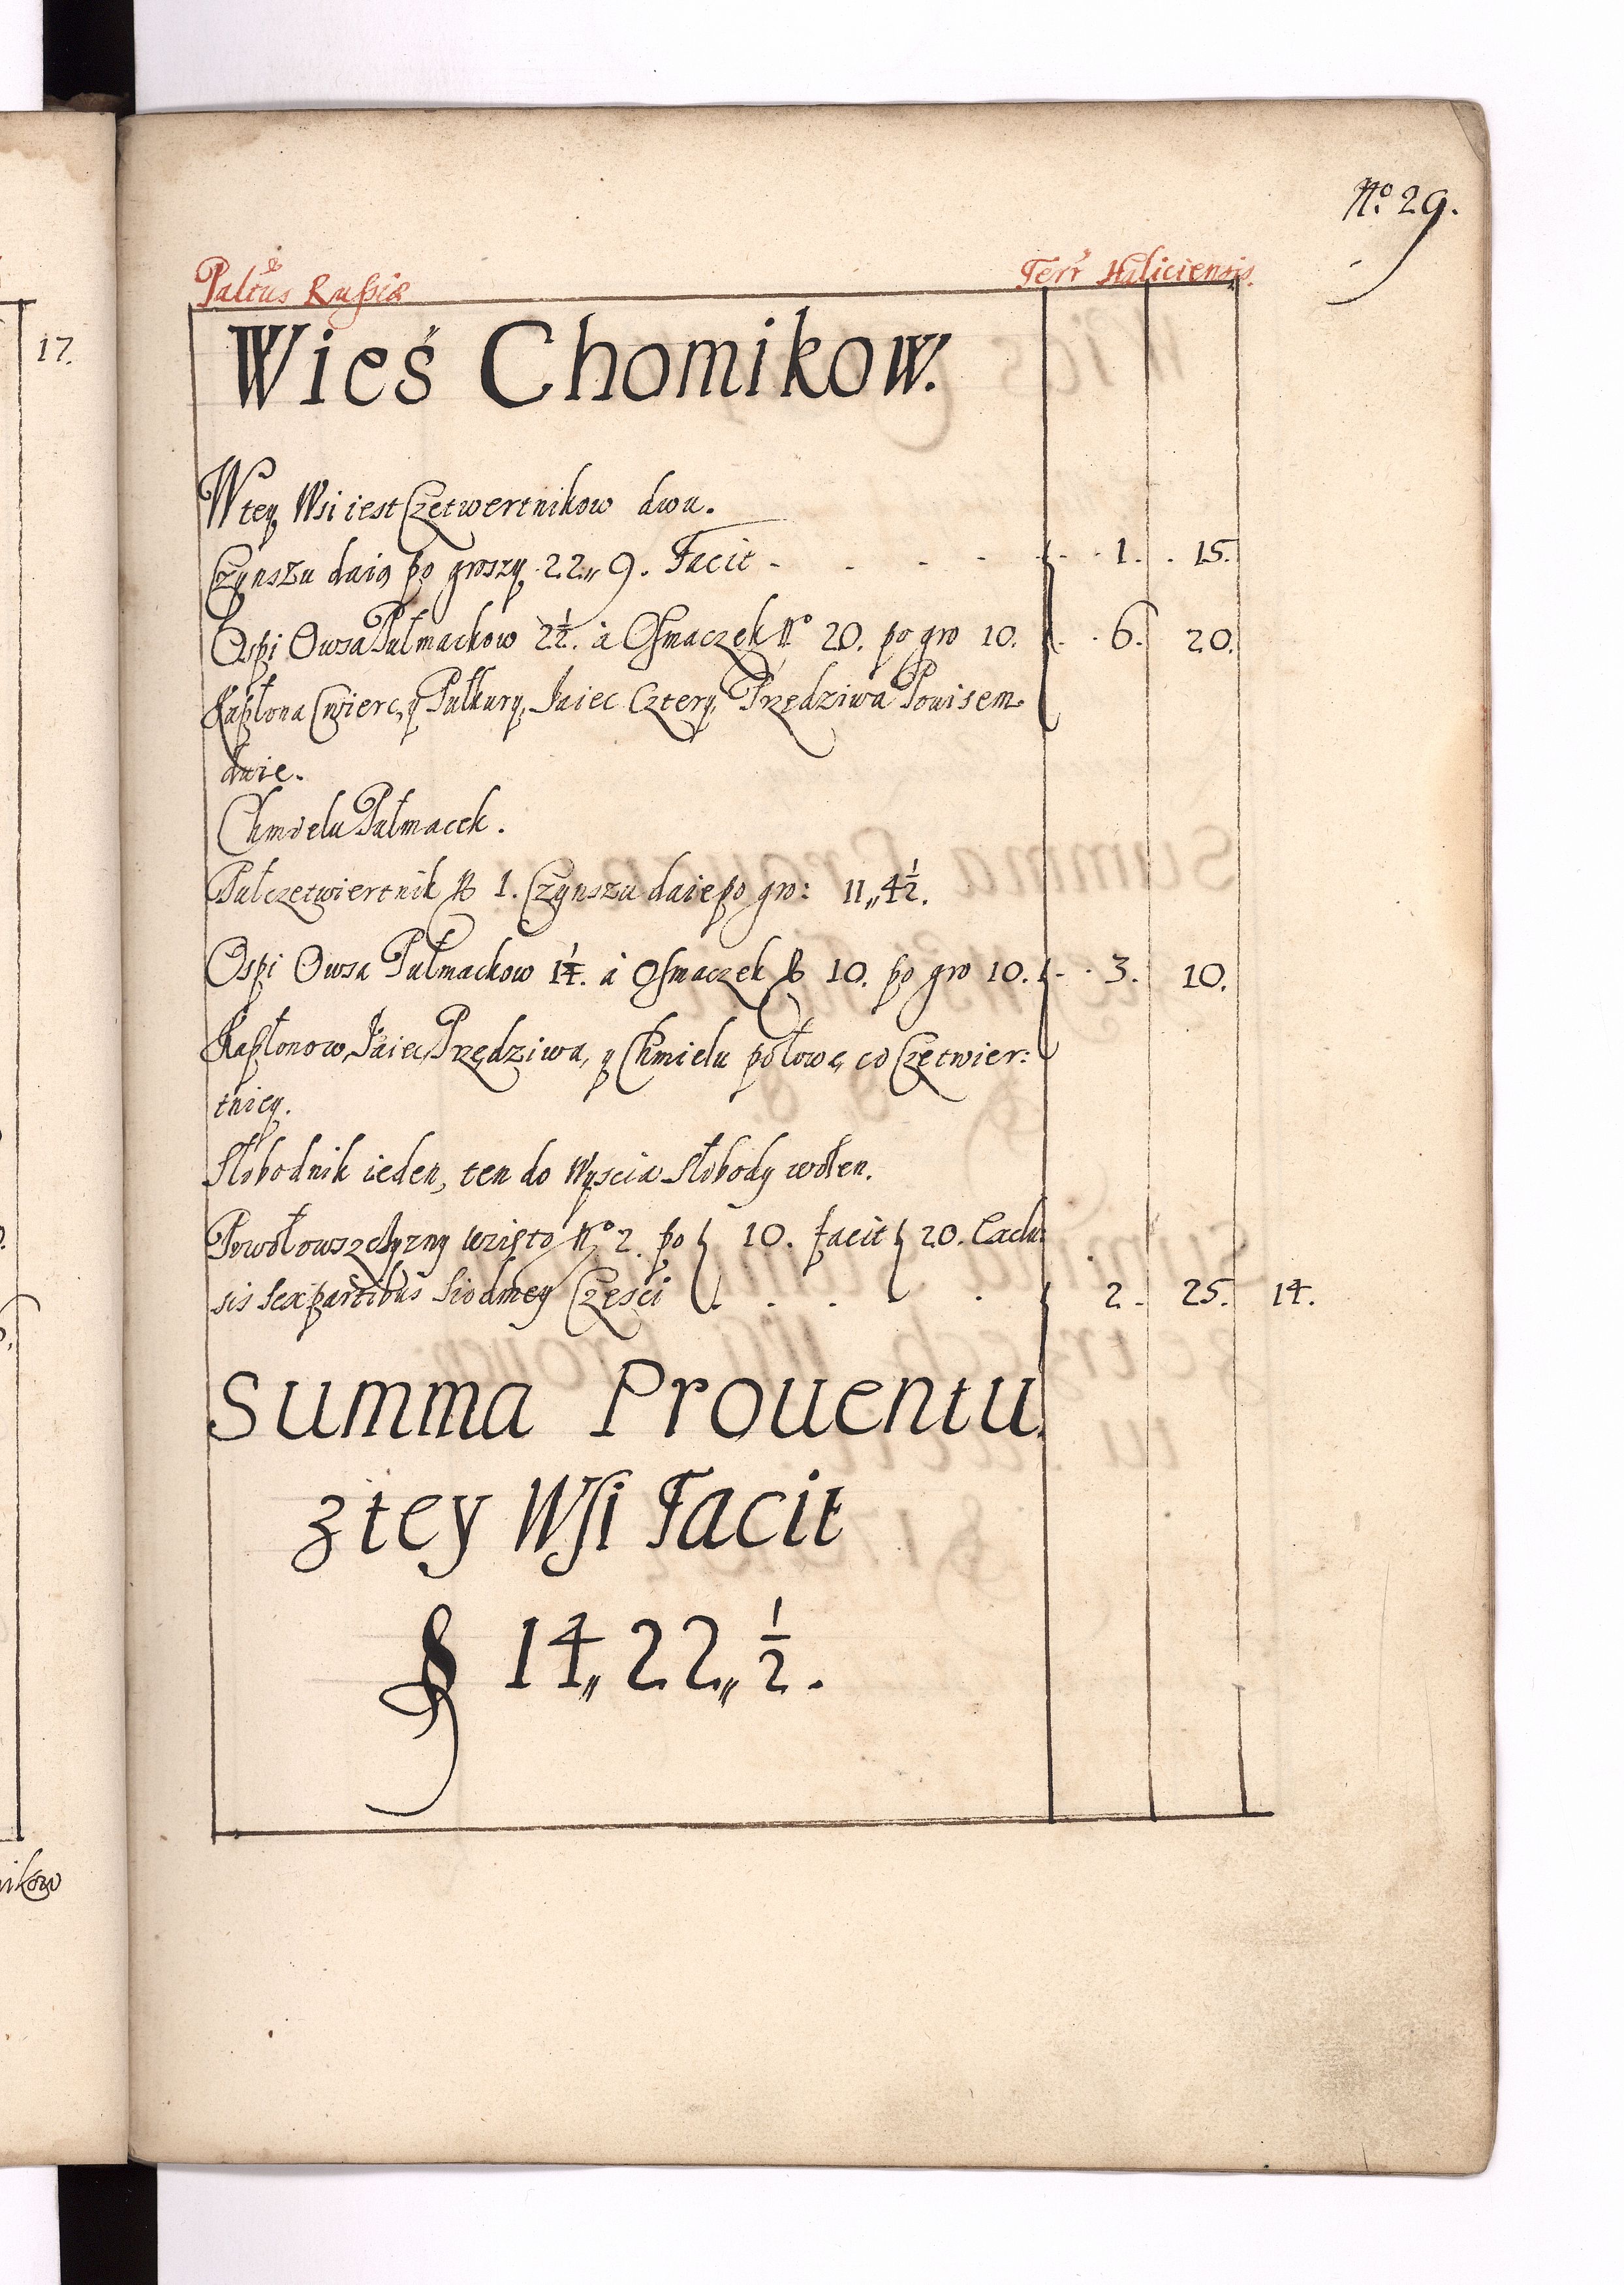 No. 29.
Palt̃us Russiæ Terr Haliciensis.
17.
Wieś Chomikow.
W tey Wsi iest Czetwertnikow dwu.
Czynszu daią po groszy 22„ 9. Facit - - - - - 1. 15.
Ospi Owsa Pułmackow 2½. à Osmaczek No 20. po gro 10. 6. 20.
Kapłona Cwierc, y Pułkury, Jaiec Cztery, Przędziwa Powisem
dwie.
Chmielu Pułmacek.
Pułczetwiertnik No 1. Czynszu daie po gro: 11„ 4½.
Ospi Owsa Pułmackow 1¼. à Osmaczek No 10. po gro 10. 3. 10.
Kapłonow, Jaiec, Przędziwa, y Chmielu połowę, co Czetwier:
tnicy.
Słobodnik ieden, ten do Wyscia Słobody wolen.
Powołowszchyzny wzięto No 2. po 10. facit 20. Cedu:
sis sex partibus Siodmey Częsci . . . . . 2. 25. 14.
Summa Prouentu
z tey Wsi Facit
14„ 22„ ½.
nikow